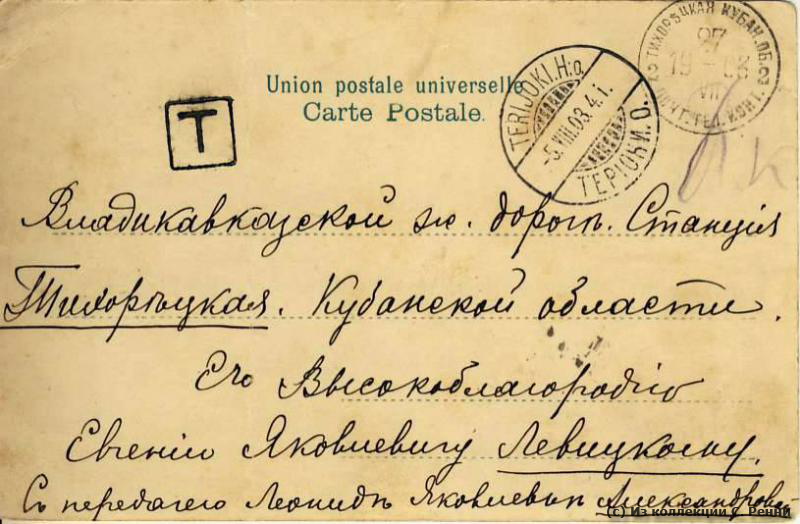 Union postale universelle
Carte Postale.
T
TERIJOKI. H:g.
-5.VIII.03.4.i.
ТЕРІОКИ. О.
ТИХОРѢЦКАЯ КУБАН. ОБ.
27
19 - 03
VII
ПОЧТ. ТЕЛ. КОНТ.
Владикавказской ж. дорогѣ. Станція
Тихорѣцкая. Кубанской области.
Его Высокоблагородію
Евгенію Яковлевичу Левицкому.
Съ передачею Леонидѣ Яковлевнѣ Александровой
(c) Из коллекции С. Ренни